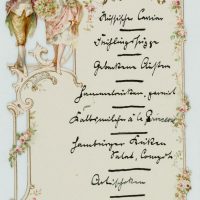 Russischer Caviar
Frühlingssuppe
Gebackene Austern
Hammelrücken, garnirt
Kalbsmilcher à la
Hamburger Kücken
Salat, Compote
Artischoken